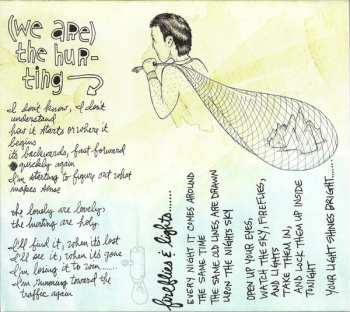 (we are)
the hur-
ting
I don't know, I don't
understand
how it starts or where it
begins
its backwards, fast forward
quickly again
I'm starting to figure out what
makes sense
the lonely are lovely.
the hurting are holy.
I'll find it, when its lost
I'll see it, when its gone
I'm losing it to win......
I'm running toward the
traffic again
fireflies & lights......
EVERY NIGHT IT COMES AROUND
THE SAME TIME
THE SAME OLD LINES, ARE DRAWN
UPON THE NIGHTS SKY
OPEN UP YOUR EYES,
WATCH THE SKY, FIREFLIES,
AND LIGHTS
TAKE THEM IN,
AND LOCK THEM UP INSIDE
TONIGHT
YOUR LIGHT SHINES BRIGHT......